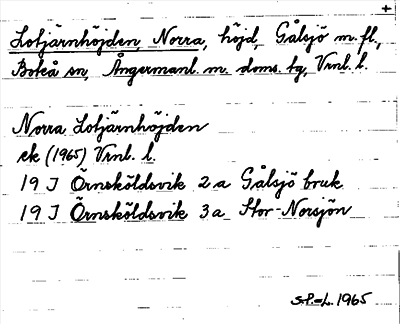 +
Lotjärnhöjden, Norra, höjd, Gålsjö m.fl.,
Boteå sn, Ångermanl. m. doms. tg, Vrnl. l.
Norra Lotjärnhöjden
ek (1965) Vrnl. l.
19 J Örnsköldsvik 2 a Gålsjö bruk
19 J Örnsköldsvik 3 a Stor-Norsjön
S.P.=L. 1965